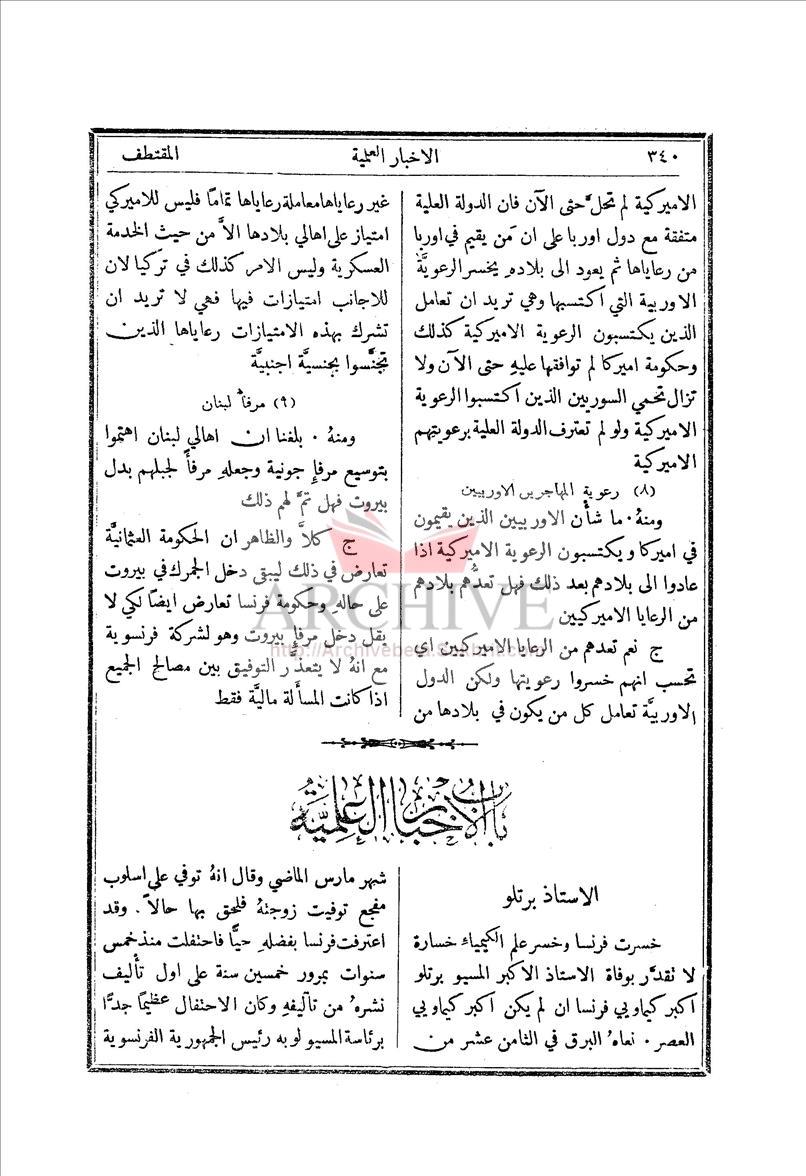 ٣٤٠ الاخبار العلمية المقتطف
الاميركية لم تحلَّ حتى الآن فان الدولة العلية
متفقة مع دول اوربا على ان مَن يقيم في اوربا
من رعاياها ثم يعود الى بلادهِ يخسر الرعويَّة
الاوربية التي اكتسبها وهي تريد ان تعامل
الذين يكتسبون الرعوية الاميركية كذلك
وحكومة اميركا لم توافقها عليهِ حتى الآن ولا
تزال تحمي السوريين الذين اكتسبوا الرعوية
الاميركية ولو لم تعترف الدولة العلية برعويتهم
الاميركية
(٨) رعوية المهاجرين الاوربيين
ومنهُ . ما شأن الاوربيين الذين يقيمون
في اميركا ويكتسبون الرعوية الاميركية اذا
عادوا الى بلادهم بعد ذلك فهل تعدُّهم بلادهم
من الرعايا الاميركيين
ج نعم تعدهم من الرعايا الاميركيين اي
تحسب انهم خسروا رعويتها ولكن الدول
الاوربيَّة تعامل كل من يكون في بلادها من
غير رعاياها معاملة رعاياها تمامًا فليس للاميركي
امتياز على اهالي بلادها الاَّ من حيث الخدمة
العسكرية وليس الامر كذلك في تركيا لان
للاجانب امتيازات فيها فهي لا تريد ان
تشرك بهذه الامتيازات رعاياها الذين
تجنَّسوا بجنسيَّة اجنبيَّة
(٩) مرفأ لبنان
ومنهُ . بلغنا ان اهالي لبنان اهتموا
بتوسيع مرفإِ جونية وجعلهِ مرفأً لجبلهم بدل
بيروت فهل تمَّ لهم ذلك
ج كلاَّ والظاهر ان الحكومة العثمانيَّة
تعارض في ذلك ليبقى دخل الجمرك في بيروت
على حالهِ وحكومة فرنسا تعارض ايضًا لكي لا
يقل دخل مرفإِ بيروت وهو لشركة فرنسوية
مع انهُ لا يتعذَّر التوفيق بين مصالح الجميع
اذا كانت المسأَلة ماليَّة فقط
باب الاخبار العلميَّة
الاستاذ برتلو
خسرت فرنسا وخسر علم الكيمياء خسارة
لا تقدَّر بوفاة الاستاذ الاكبر المسيو برتلو
اكبر كيماويي فرنسا ان لم يكن اكبر كيماويي
العصر . نعاهُ البرق في الثامن عشر من
شهر مارس الماضي وقال انهُ توفي على اسلوب
مفجع توفيت زوجتهُ فلحق بها حالاً . وقد
اعترفت فرنسا بفضلهِ حيًّا فاحتفلت منذ خمس
سنوات بمرور خمسين سنة على اول تأليف
نشرهُ من تآليفهِ وكان الاحتفال عظيمًا جدًّا
برئاسة المسيو لوبه رئيس الجمهورية الفرنسوية
ARCHIVE